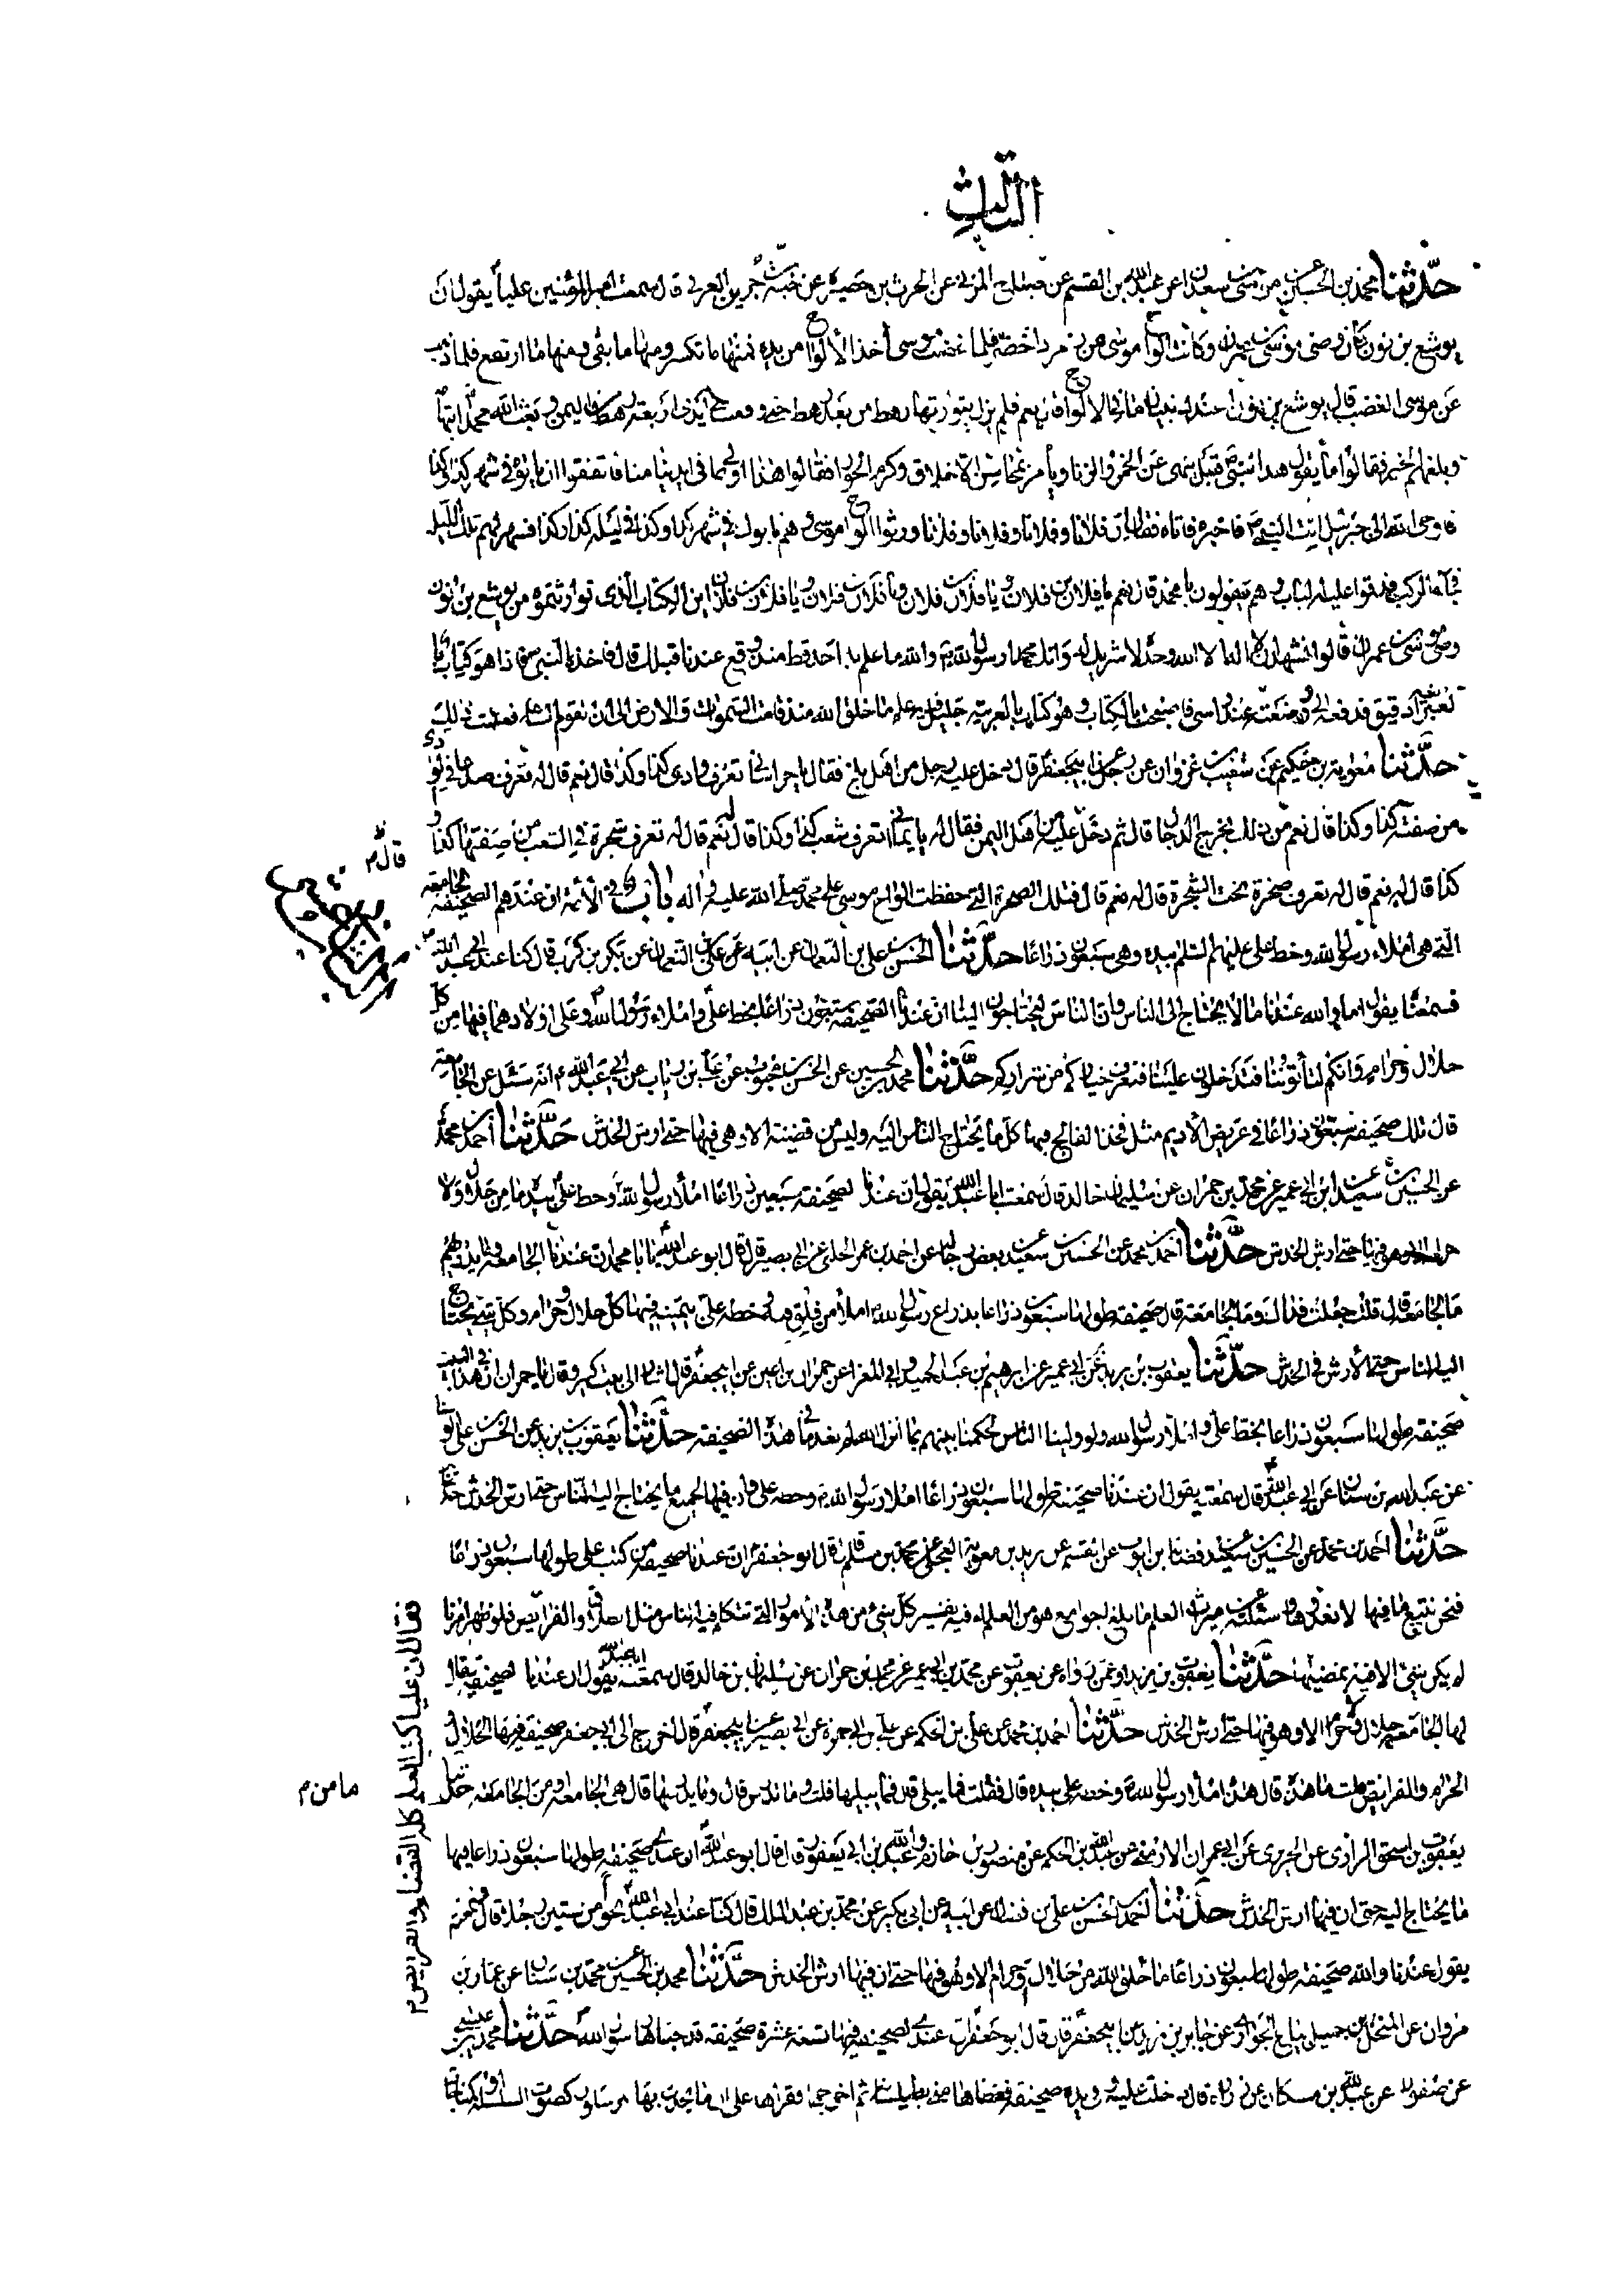 الثالث
حدثنا محمد بن الحسين عن موسى بن سعدان عن عبد الله بن القسم عن صباح المزني عن الحرث بن حصيرة عن حبة بن جوين العرني قال سمعت امير المؤمنين عليا يقول ان
يوشع بن نون كان وصي موسى بن عمران وكانت الواح موسى من زمرد اخضر فلما غضب موسى اخذ الالواح من يده فمنها ما تكسر ومنها ما بقي ومنها ما ارتفع فلما ذهب
عن موسى الغضب قال يوشع بن نون عندك تبيان ما في الالواح قال نعم فلم يزل يتوارثها رهط من بعد رهط حتى وقعت في ايدي اربعة رهط من اليمن وبعث الله محمدا بتهامة
وبلغهم الخبر فقالوا ما يقول هذا النبي قيل ينهى عن الخمر والزنا ويأمر بمحاسن الاخلاق وكرم الجوار فقالوا هذا اولى بما في ايدينا منا فاتفقوا ان يأتوه في شهر كذا وكذا
فاوحى الله الى جبرئيل ايت النبي فاخبره فاتاه فقال ان فلانا وفلانا وفلانا وفلانا ورثوا الواح موسى وهم يأتوك في شهر كذا وكذا في ليلة كذا وكذا فسهر لهم تلك الليلة
فجاء الركب فدقوا عليه الباب وهم يقولون يا محمد قال نعم يا فلان بن فلان ويا فلان بن فلان ويا فلان بن فلان ويا فلان بن فلان اين الكتاب الذي توارثتموه من يوشع بن نون
وصي موسى بن عمران قالوا نشهد ان لا اله الا الله وحده لا شريك له وانك محمدا رسول الله والله ما علم به احد قط منذ وقع عندنا قبلك قال فاخذه النبي فاذا هو كتاب
بالعبرانية دقيق فدفعه الي ووضعته عند راسي فاصبحت بالكتاب وهو كتاب بالعربية جليل فيه علم ما خلق الله منذ قامت السموات والارض الى ان تقوم الساعة فعلمت ذلك
حدثنا معوية بن حكيم عن شعيب بن غزوان عن رجل عن ابي جعفر قال دخل عليه رجل من اهل بلخ فقال يا خراساني تعرف وادي كذا وكذا قال نعم قال له تعرف صدعا في الوادي
من صفته كذا وكذا قال نعم من ذلك يخرج الدجال قال ثم دخل عليه رجل من اهل اليمن فقال له يا يماني اتعرف شعب كذا وكذا قال له نعم قال له تعرف شجرة في الشعب من صفتها كذا و
كذا قال له نعم قال له تعرف صخرة تحت الشجرة قال له نعم قال فتلك الصخرة التي حفظت الواح موسى على محمد صلى الله عليه واله باب في الائمة ان عندهم الصحيفة الجامعة
التي هي املاء رسول الله وخط علي عليهما السلام بيده وهي سبعون ذراعا حدثنا الحسن بن علي بن النعمان عن ابيه عن علي بن النعمان عن بكر بن كرب قال كنا عند ابي عبد الله
فسمعنا يقول اما والله عندنا ما لا يحتاج الى الناس وان الناس ليحتاجون الينا ان عندنا الصحيفة سبعون ذراعا بخط علي واملاء رسول الله وعلى اولادهما فيها من كل
حلال وحرام وانكم لتأتوننا فتدخلون علينا فنعرف خياركم من شراركم حدثنا محمد بن الحسين عن الحسن بن محبوب عن علي بن رئاب عن ابي عبد الله انه سئل عن الجامعة
قال تلك صحيفة سبعون ذراعا في عريض الاديم مثل فخذ الفالج فيها كل ما يحتاج الناس اليه وليس من قضية الا وهي فيها حتى ارش الخدش حدثنا احمد بن محمد
عن الحسين بن سعيد عن ابن ابي عمير عن محمد بن حمران عن سليمان بن خالد قال سمعت ابا عبد الله يقول ان عندنا لصحيفة سبعين ذراعا املاء رسول الله وخط علي بيده ما من حلال ولا
حرام الا وهو فيها حتى ارش الخدش حدثنا احمد بن محمد عن الحسين بن سعيد عن بعض رجاله عن احمد بن عمر الحلبي عن ابي بصير قال قال ابو عبد الله يا با محمد ان عندنا الجامعة وما يدريهم
ما الجامعة قال قلت جعلت فداك وما الجامعة قال صحيفة طولها سبعون ذراعا بذراع رسول الله املاء من فلق فيه وخطه علي بيمينه فيها كل حلال وحرام وكل شيء يحتاج
اليه الناس حتى الارش في الخدش حدثنا يعقوب بن يزيد عن ابن ابي عمير عن ابرهيم بن عبد الحميد وابي المغرا عن حمران بن اعين عن ابي جعفر قال اشار الى بيت كبير وقال يا حمران ان في هذا البيت
صحيفة طولها سبعون ذراعا بخط علي واملاء رسول الله ولو ولينا الناس لحكمنا بينهم بما انزل الله لم نعد ما في هذه الصحيفة حدثنا يعقوب بن يزيد عن الحسن بن علي الوشا
عن عبد الله بن سنان عن ابي عبد الله قال سمعته يقول ان عندنا صحيفة طولها سبعون ذراعا املاء رسول الله وخطه علي وان فيها لجميع ما يحتاج اليه الناس حتى ارش الخدش
حدثنا احمد بن محمد عن الحسين بن سعيد عن فضالة بن ايوب عن القسم عن بريد بن معوية العجلي عن محمد بن مسلم قال قال ابو جعفر ان عندنا صحيفة من كتب علي طولها سبعون ذراعا
فنحن نتبع ما فيها لا نعدوها وسئلته عن ميراث العلم ما بلغ اجوامع هو من العلم ام فيه تفسير كل شيء من هذه الامور التي تتكلم فيه الناس مثل الطلاق والفرائض
لم يكن شيء الا فيه نمضيها حدثنا يعقوب بن يزيد او عمن رواه عن يعقوب عن محمد بن ابي عمير عن محمد بن حمران عن سليمان بن خالد قال سمعت ابا عبد الله يقول ان عندنا لصحيفة يقال
لها الجامعة ما من حلال وحرام الا وهو فيها حتى ارش الخدش حدثنا احمد بن محمد عن علي بن الحكم عن علي بن ابي حمزة عن ابي بصير عن ابي جعفر قال اخرج الي ابي جعفر صحيفة فيها الحلال و
الحرام والفرايض قلت ما هذه قال هذه املاء رسول الله وخطه علي بيده قال فقلت فما يبلى قال فما يبليها قلت وما تدرس قال وما يدرسها قال هي الجامعة او من الجامعة حدثنا
يعقوب بن اسحق الرازي عن الحريري عن ابي عمران الارمني عن عبد الله بن الحكم عن منصور بن حازم وعبد الله بن ابي يعفور قال قال ابو عبد الله ان عندي صحيفة طولها سبعون ذراعا فيها
ما يحتاج اليه حتى ان فيها ارش الخدش حدثنا احمد بن الحسن بن علي بن فضال عن ابيه عن ابن بكير عن محمد بن عبد الملك قال كنا عند ابي عبد الله نحوا من ستين رجلا قال
يقول عندنا والله صحيفة طولها سبعون ذراعا ما خلق الله من حلال وحرام الا وهو فيها حتى ان فيها ارش الخدش حدثنا محمد بن الحسين عن محمد بن سنان عن عمار بن
مروان عن المنخل بن جميل بياع الجواري عن جابر بن يزيد عن ابي جعفر قال قال ابو جعفر ان عندي لصحيفة فيها تسعة عشرة صحيفة قد حباها رسول الله حدثنا محمد بن عيسى
عن صفوان عن عبد الله بن مسكان عن زرارة قال دخلت عليه وفي يده صحيفة فغطاها مني بطيلسانه ثم اخرجها فقراها علي ان ما يحدث بها المرسلون كصوت السلسلة
قال م
ما من م
فقال ان عليا كتب العلم كله القضاء والفرايض م